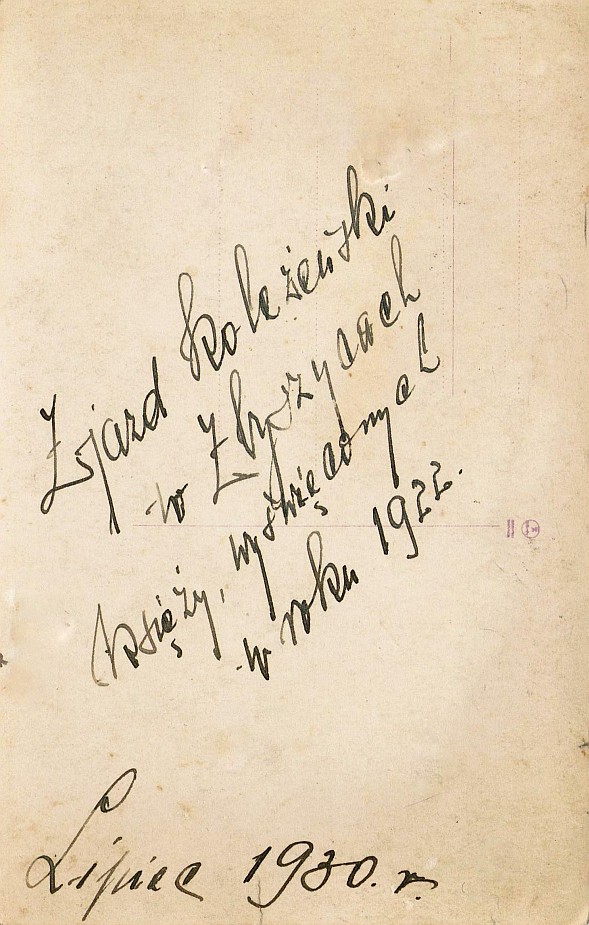 Zjazd koleżeński
w Zbyszycach
księży, wyświęconych
w roku 1922.
Lipiec 1930. r.